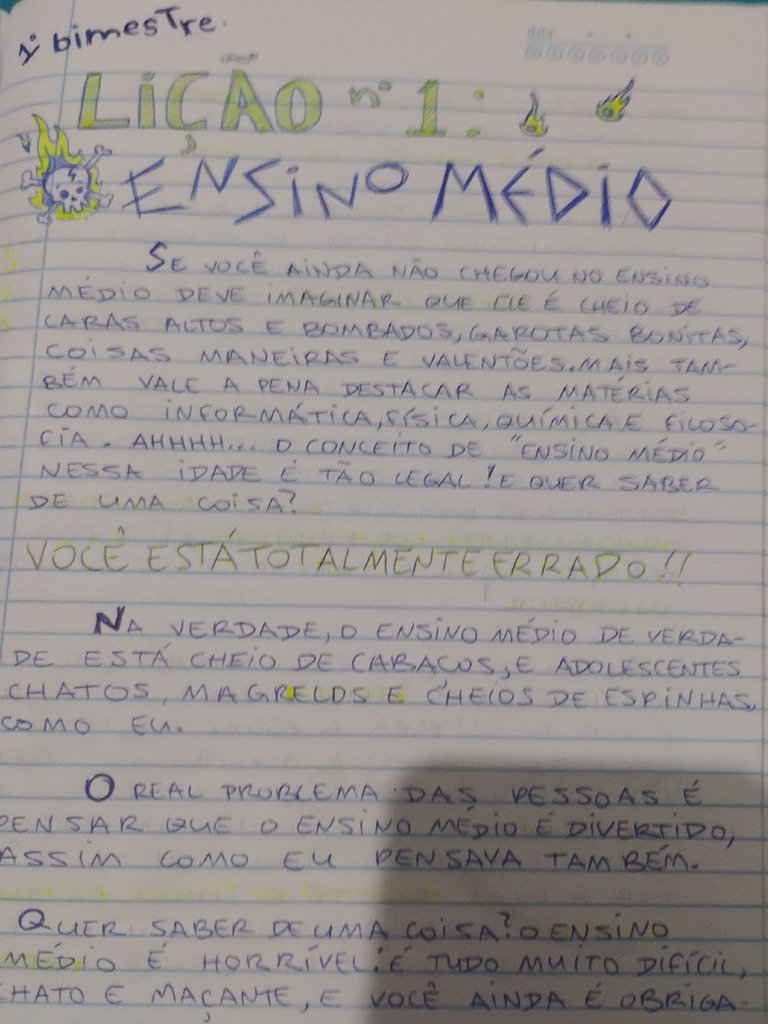 1º bimestre.
LIÇÃO nº 1:
ENSINO MÉDIO
SE VOCÊ AINDA NÃO CHEGOU NO ENSINO
MÉDIO DEVE IMAGINAR QUE ELE É CHEIO DE
CARAS ALTOS E BOMBADOS, GAROTAS BONITAS,
COISAS MANEIRAS E VALENTÕES. MAIS TAM-
BÉM VALE A PENA DESTACAR AS MATÉRIAS
COMO INFORMÁTICA, FÍSICA, QUÍMICA E FILOSO-
FIA. AHHHH... O CONCEITO DE "ENSINO MÉDIO"
NESSA IDADE É TÃO LEGAL! E QUER SABER
DE UMA COISA?
VOCÊ ESTÁ TOTALMENTE ERRADO!!
NA VERDADE, O ENSINO MÉDIO DE VERDA-
DE ESTÁ CHEIO DE CABAÇOS, E ADOLESCENTES
CHATOS, MAGRELOS E CHEIOS DE ESPINHAS,
COMO EU.
O REAL PROBLEMA DAS PESSOAS É
PENSAR QUE O ENSINO MÉDIO É DIVERTIDO,
ASSIM COMO EU PENSAVA TAMBÉM.
QUER SABER DE UMA COISA? O ENSINO
MÉDIO É HORRÍVEL! É TUDO MUITO DIFÍCIL,
CHATO E MAÇANTE, E VOCÊ AINDA É OBRIGA-